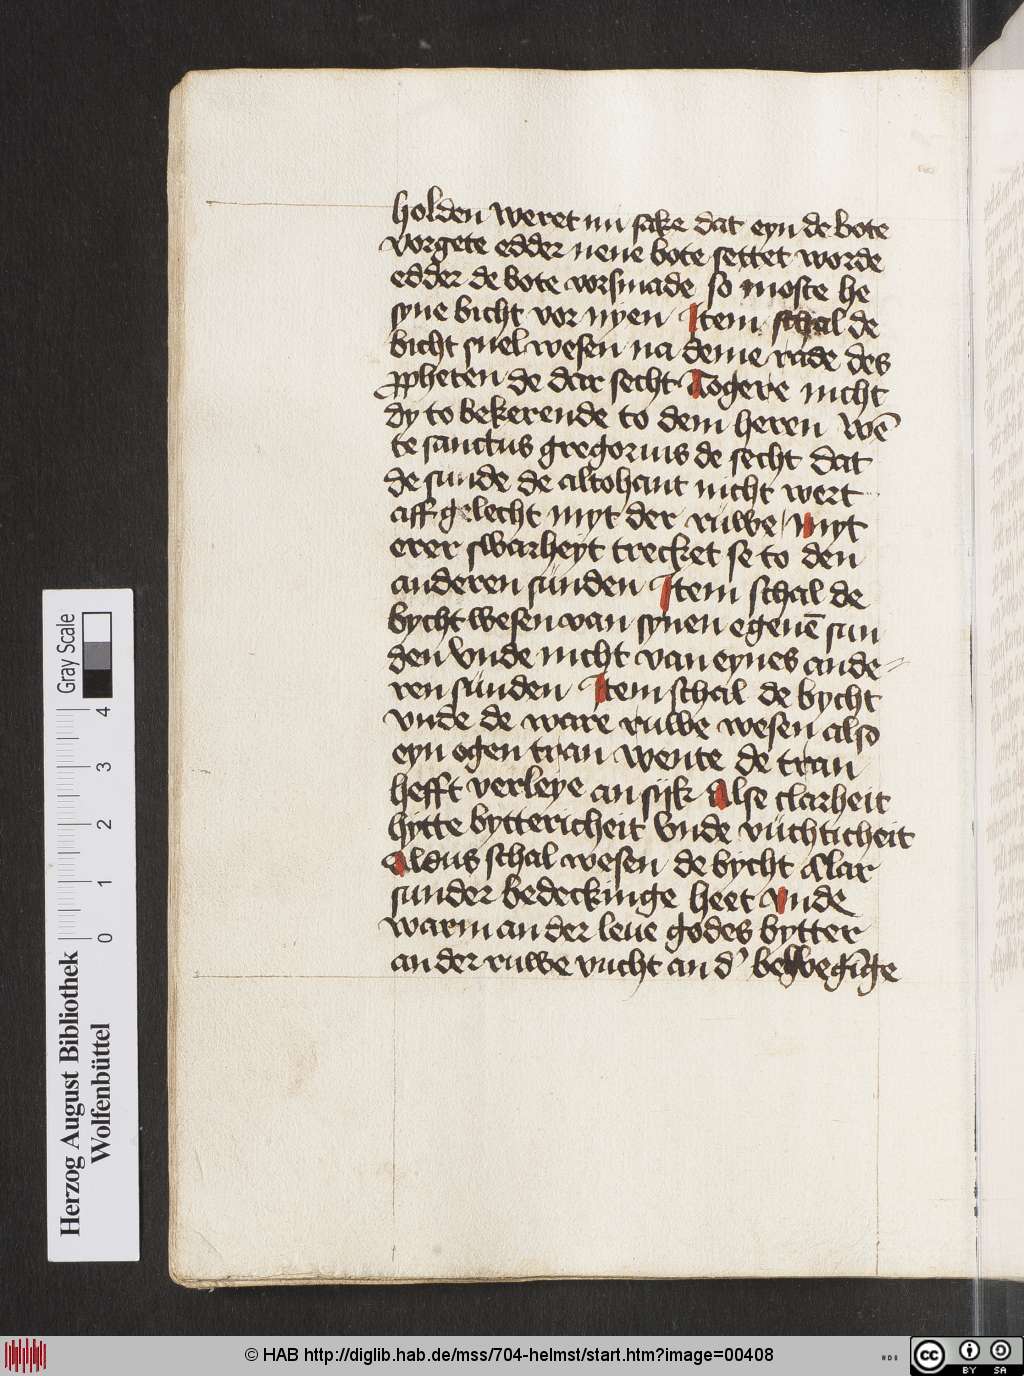 holden weret nu sake dat eyn de bote
vorgete edder nene bote settet worde
edder de bote vorsmade so moste he
syne bicht vor nyen Item schal de
bicht snel wesen na deme rade des
ppheten de dar secht Togere nicht
dy to bekerende to dem heren Wē
te sanctus gregorius de secht dat
de sunde de altohant nicht wert
aff gelecht myt der rüwe myt
erer swarheyt trecket se to den
anderen sünden Item schal de
bycht wesen van synen egenē sun
den vnde nicht van eynes ande-
ren sünden Item schal de bycht
vnde de ware ruwe wesen also
eyn ogen tran wente de tran
hefft verleye an sijk Alse clarheit
hytte bytter­icheit vnde vüchticheit
Aldus schal wesen de bycht Clar
sunder bedeckinge heet vnde
warm an der leue godes bytter
an der ruwe vucht an d' bewegīge
Herzog August Bibliothek
Wolfenbüttel
Gray Scale
0 1 2 3 4
© HAB http://diglib.hab.de/mss/704-helmst/start.htm?image=00408
cc BY SA